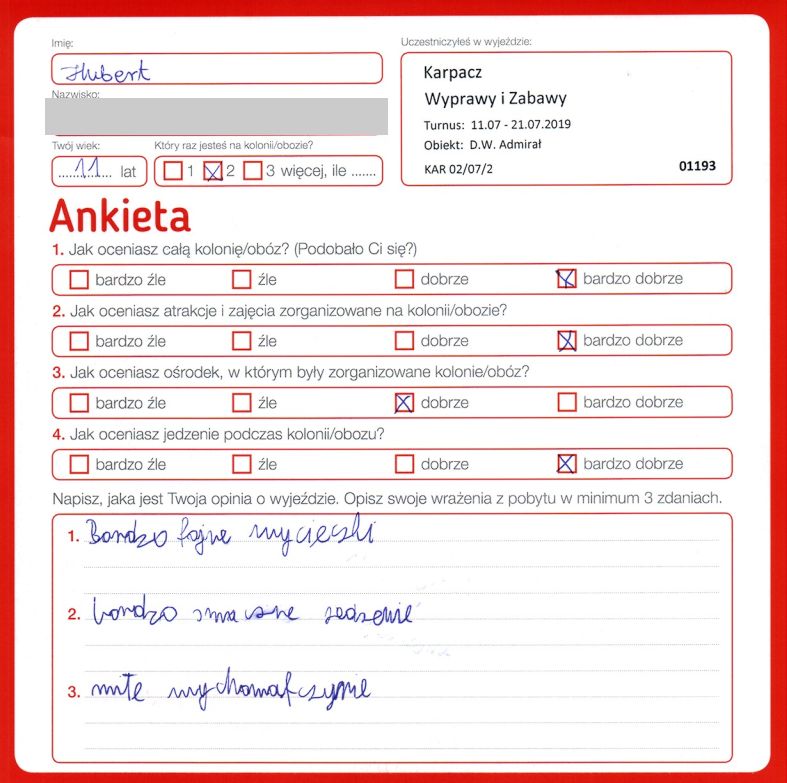 Imię:
Hubert
Nazwisko:
Twój wiek:
Który raz jesteś na kolonii/obozie?
11 lat
1 2 3 więcej, ile .......
Uczestniczyłeś w wyjeździe:
Karpacz
Wyprawy i Zabawy
Turnus: 11.07 - 21.07.2019
Obiekt: D.W. Admirał
KAR 02/07/2
01193
Ankieta
1. Jak oceniasz całą kolonię/obóz? (Podobało Ci się?)
bardzo źle źle dobrze bardzo dobrze
2. Jak oceniasz atrakcje i zajęcia zorganizowane na kolonii/obozie?
bardzo źle źle dobrze bardzo dobrze
3. Jak oceniasz ośrodek, w którym były zorganizowane kolonie/obóz?
bardzo źle źle dobrze bardzo dobrze
4. Jak oceniasz jedzenie podczas kolonii/obozu?
bardzo źle źle dobrze bardzo dobrze
Napisz, jaka jest Twoja opinia o wyjeździe. Opisz swoje wrażenia z pobytu w minimum 3 zdaniach.
1. Bardzo fajne wycieczki
2. bardzo smaczne
3. miłe